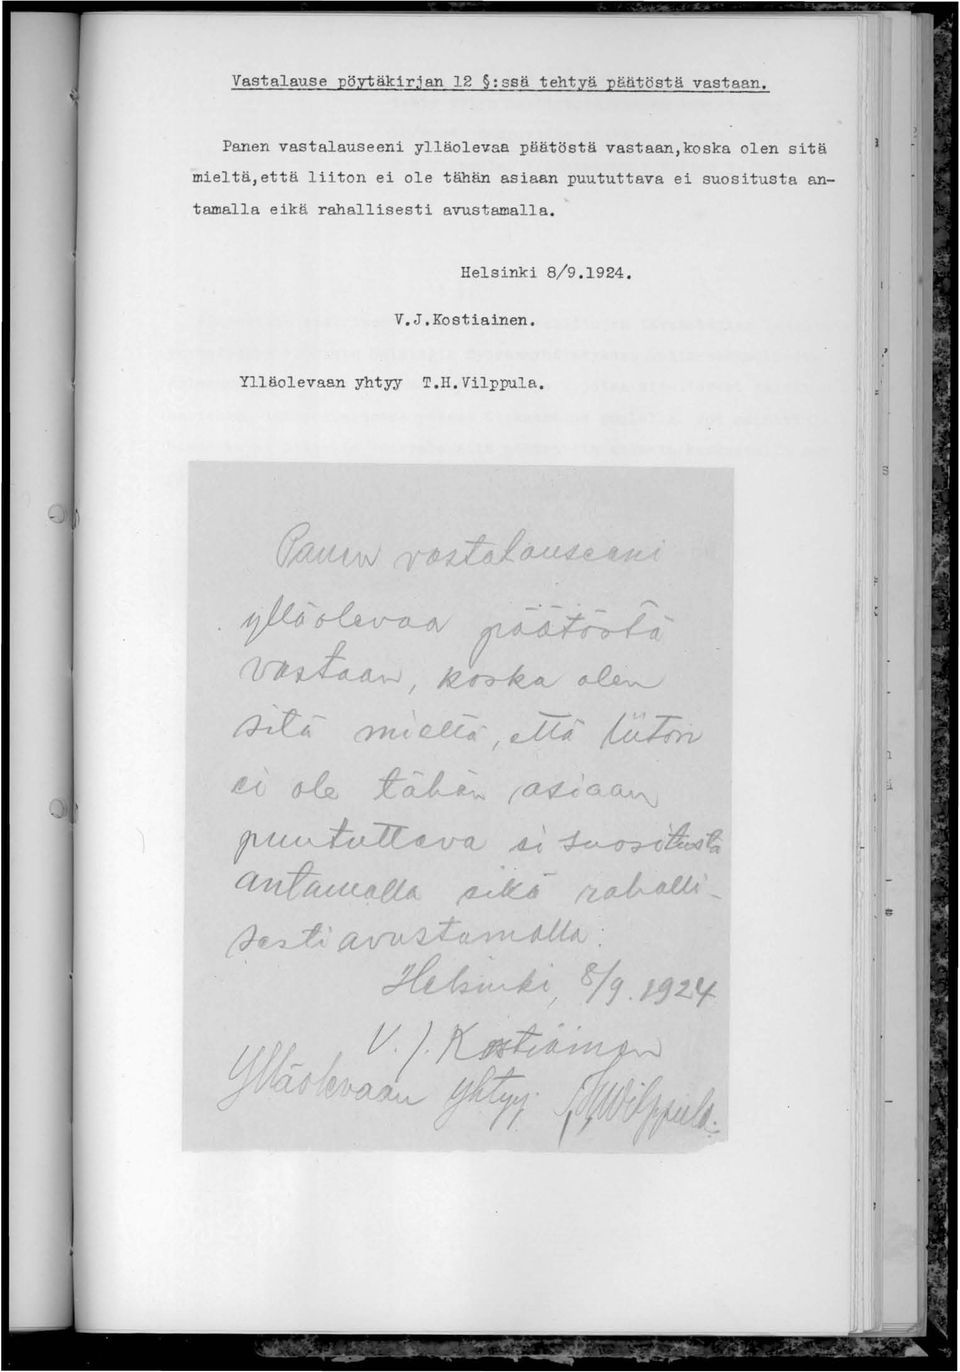 Vastalause pöytäkirjan 12 §:ssä tehtyä päätöstä vastaan.
Panen vastalauseeni ylläolevaa päätöstä vastaan,koska olen sitä
mieltä,että liiton ei ole tähän asiaan puututtava ei suositusta an-
tamalla eikä rahallisesti avustamalla.
Helsinki 8/9.1924.
V.J.Kostiainen.
Ylläolevaan yhtyy T.H.Vilppula.
Panen vastalauseeni
ylläolevaa päätöstä
vastaan, koska olen
sitä mieltä, että liiton
ei ole tähän asiaan
puututtava ei suositusta
antamalla eikä rahalli-
sesti avustamalla.
Helsinki, 8/9. 1924
V. J. Kostiainen
Ylläolevaan yhtyy. T.H.Vilppula.